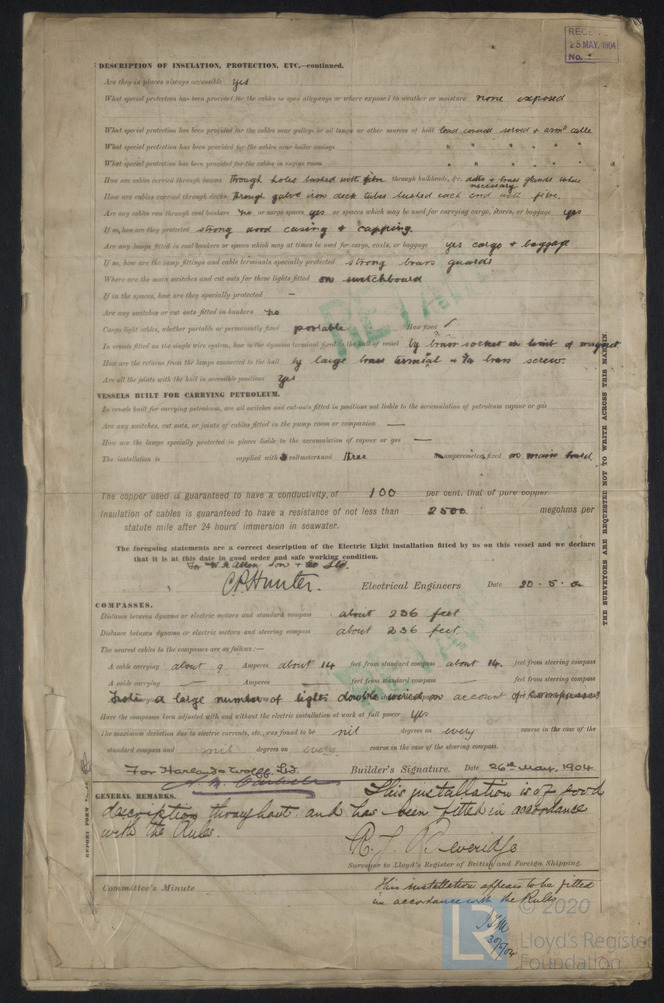 REC
25 MAY. 1904
No.
DESCRIPTION OF INSULATION, PROTECTION, ETC.—continued.
Are they in places always accessible yes
What special protection has been provided for the cables in open alleyways or where exposed to weather or moisture none exposed
What special protection has been provided for the cables near galleys or oil lamps or other sources of heat lead covered served & armd cable
What special protection has been provided for the cables near boiler casings " " " " "
What special protection has been provided for the cables in engine room " " " " "
How are cables carried through beams through holes bushed with fibre through bulkheads, &c. & brass glands where necessary
How are cables carried through decks through galvd iron deck tubes bushed each end with fibre.
Are any cables run through coal bunkers no or cargo spaces yes or spaces which may be used for carrying cargo, stores, or baggage yes
If so, how are they protected strong wood casing & capping.
Are any lamps fitted in coal bunkers or spaces which may at times be used for cargo, coals, or baggage yes cargo & baggage
If so, how are the lamp fittings and cable terminals specially protected strong brass guards
Where are the main switches and cut outs for these lights fitted on switchboard
If in the spaces, how are they specially protected —
Are any switches or cut outs fitted in bunkers no
Cargo light cables, whether portable or permanently fixed portable How fixed ✓
In vessels fitted on the single wire system, how is the dynamo terminal fixed to the hull of vessel by brass socket in limb of magnet
How are the returns from the lamps connected to the hull by large brass terminal & brass screw.
Are all the joints with the hull in accessible positions yes
VESSELS BUILT FOR CARRYING PETROLEUM.
In vessels built for carrying petroleum, are all switches and cut-outs fitted in positions not liable to the accumulation of petroleum vapour or gas
Are any switches, cut outs, or joints of cables fitted in the pump room or companion —
How are the lamps specially protected in places liable to the accumulation of vapour or gas —
The installation is supplied with voltmeters and three amperemeters, fixed on main board
The copper used is guaranteed to have a conductivity of 100 per cent. that of pure copper.
Insulation of cables is guaranteed to have a resistance of not less than 2500 megohms per
statute mile after 24 hours' immersion in seawater.
The foregoing statements are a correct description of the Electric Light installation fitted by us on this vessel and we declare
that it is at this date in good order and safe working condition.
For W. H. Allen Son & Co Ltd.
C R Hunter. Electrical Engineers Date 20.5.
COMPASSES.
Distance between dynamo or electric motors and standard compass about 236 feet
Distance between dynamo or electric motors and steering compass about 236 feet
The nearest cables to the compasses are as follows:—
A cable carrying about 9 Amperes about 14 feet from standard compass about 14. feet from steering compass
A cable carrying — Amperes — feet from standard compass — feet from steering compass
Note a large number of lights double wired on account of compasses
Have the compasses been adjusted with and without the electric installation at work at full power yes
The maximum deviation due to electric currents, etc., was found to be nil degrees on every course in the case of the
standard compass and nil degrees on every course in the case of the steering compass.
For Harland & Wolff Ld. Builder's Signature. Date 26th May, 1904.
GENERAL REMARKS. This installation is of good
description throughout and has been fitted in accordance
with the Rules.
R. J. Beveridge
Surveyor to Lloyd's Register of British and Foreign Shipping.
Committee's Minute This installation appears to be fitted
in accordance with the Rules
30/5/04
THE SURVEYORS ARE REQUESTED NOT TO WRITE ACROSS THIS MARGIN.
REPORT FORM
© 2020
LR
Lloyd's Register
Foundation